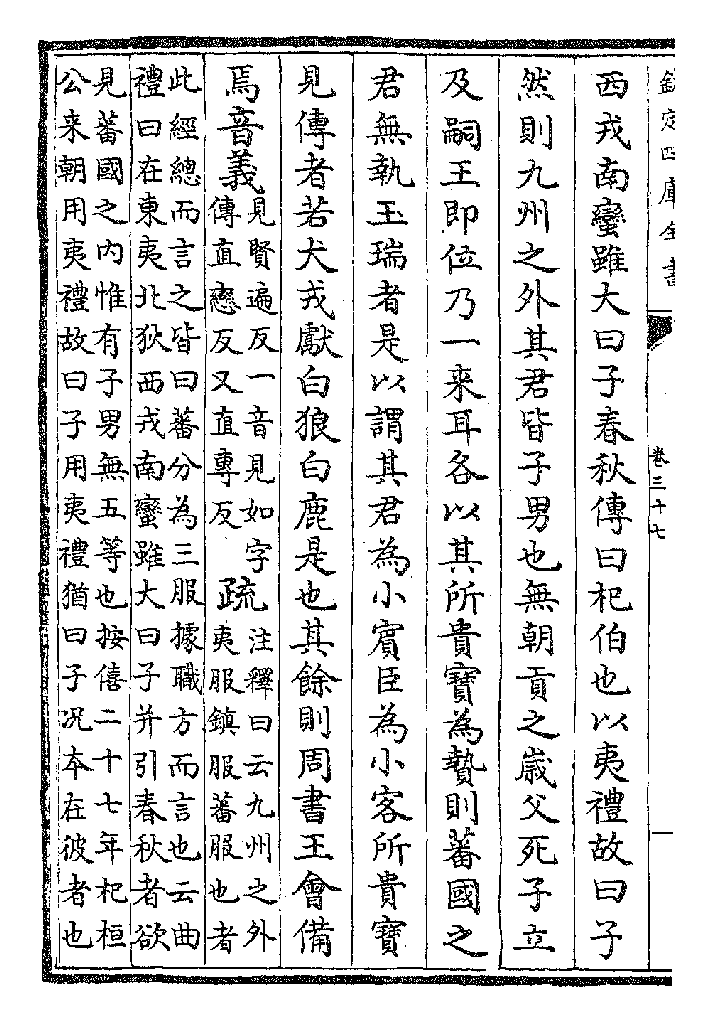 欽定四庫全書
卷三十七
西戎南蠻雖大曰子春秋傳曰杞伯也以夷禮故曰子
然則九州之外其君皆子男也無朝貢之歲父死子立
及嗣王即位乃一来耳各以其所貴寶為贄則蕃國之
君無執玉瑞者是以謂其君為小賓臣為小客所貴寶
見傳者若犬戎獻白狼白鹿是也其餘則周書王會備
焉音義見賢遍反一音見如字
傳直戀反又直專反
疏注釋曰云九州之外
夷服鎮服蕃服也者
此經總而言之皆曰蕃分為三服據職方而言也云曲
禮曰在東夷北狄西戎南蠻雖大曰子并引春秋者欲
見蕃國之内惟有子男無五等也按僖二十七年杞桓
公来朝用夷禮故曰子用夷禮猶曰子况本在彼者也